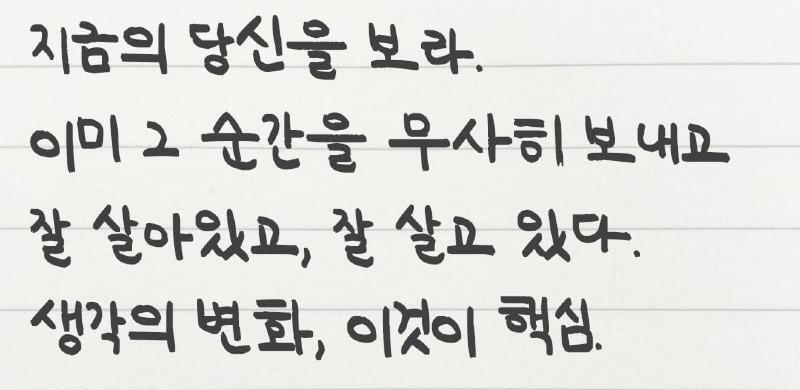 지금의 당신을 보라.
이미 그 순간을 무사히 보내고
잘 살아있고, 잘 살고 있다.
생각의 변화, 이것이 핵심.